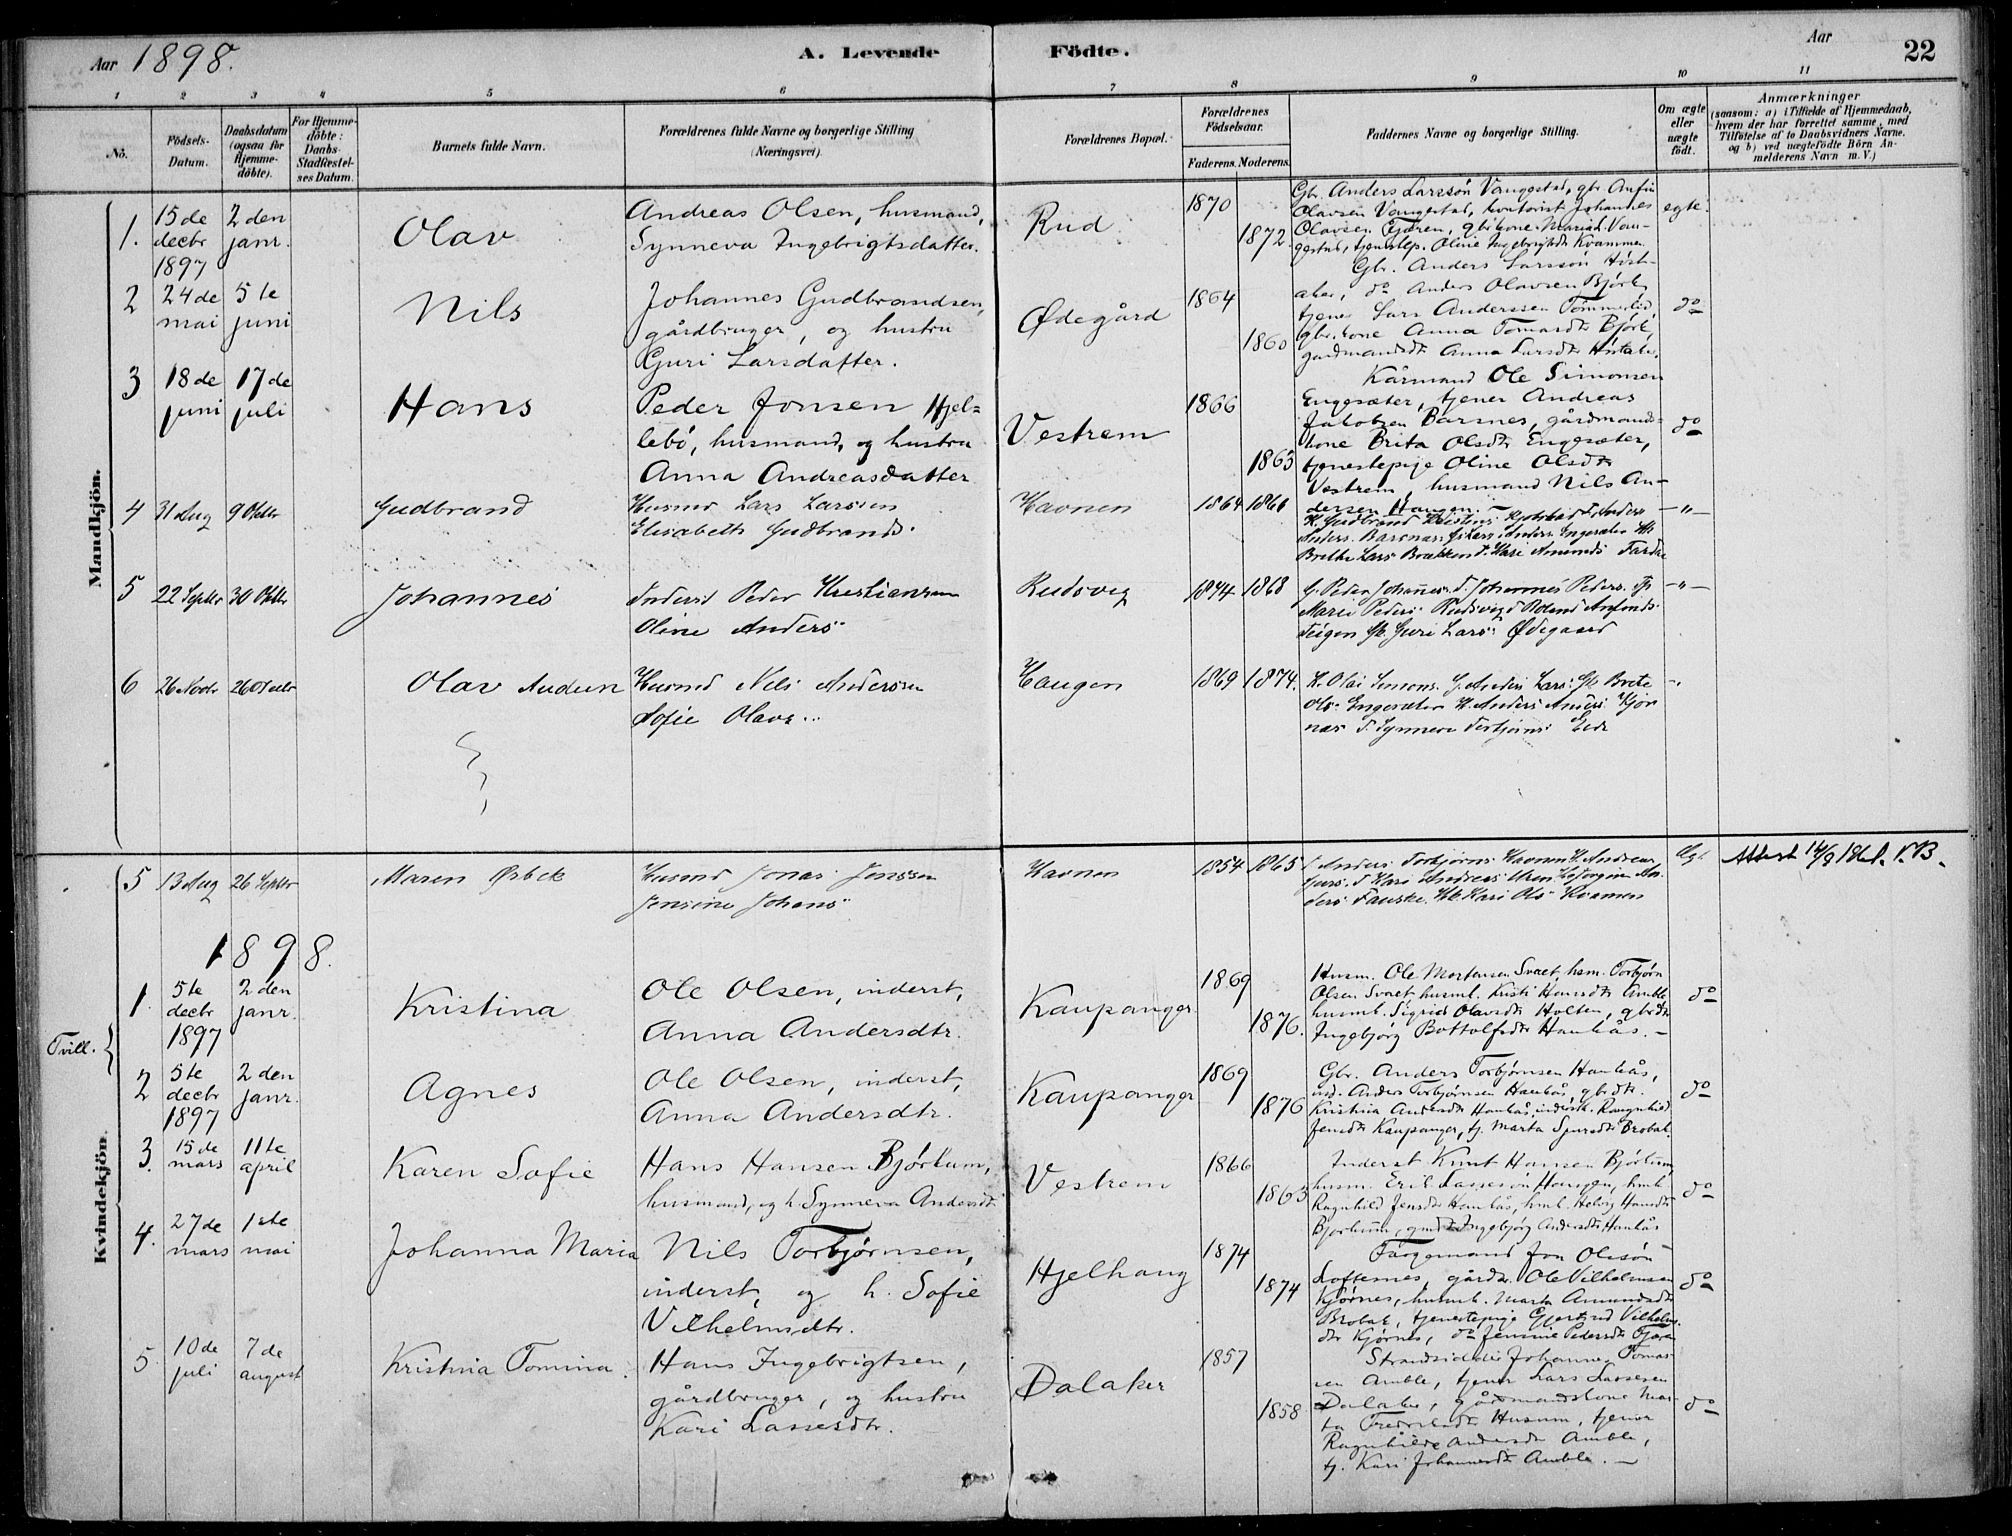 Aar 1898.
A. Levende Födte.
Aar
22
1 2 3 4 5 6 7 8 9 10 11
No.
Födsels-Datum.
Daabsdatum (ogsaa for Hjemme-döbte).
For Hjemme-döbte: Daabs-Stadfæstel-ses Datum.
Barnets fulde Navn.
Forældrenes fulde Navne og borgerlige Stilling (Næringsvei).
Forældrenes Bopæl.
Forældrenes Födselsaar.
Faderens. Moderens.
Faddernes Navne og borgerlige Stilling.
Om ægte eller uægte födt.
Anmærkninger
(saasom: a) i Tilfælde af Hjemmedaab, hvem der har forrettet samme, med Tilföielse af to Daabsvidners Navne, og b) ved uægtefödte Börn Anmelderens Navn m. V.)
Mandkjön.
1. 15de decbr 1897
2den janr.
Olav
Andreas Olsen, husmand,
Synneva Ingebrigtsdatter.
Rud
1870
1872
Gbr. Anders Larssön Vangestad, gbr Anfin
Olavsen Vangestad, kontorist Johannes
Olavsen Fjæren, gbrkone Maria Van-
gestad, tjenestep. Oline Ingebrigtsdtr Kvammen
egte.
2 24de mai
5te juni
Nils
Johannes Gudbrandsen,
gårdbruger, og hustru
Guri Larsdatter.
Ødegård
1864
1860
Gbr. Anders Larssön Höst-
aker, do Anders Olavsen Björk,
tjener Lars Anderssen Tömmerlid,
gbr.kone Anna Tomasdtr Björk,
gardmandsdtr Anna Larsdtr Höstaker.
do
3 18de juni
17de juli
Hans
Peder Jonsen Hjel-
lebö, husmand, og hustru
Anna Andreasdatter
Vestrem
1866
1863
Kårmand Ole Simonsen
Engesæter, tjener Andreas
Jakobsen Barsnes, gårdmands-
kone Brita Olsdtr Engesæter,
tjenestepige Oline Olsdtr
Vestrem, husmand Nils An-
dersen Haugen.
do
4 31 Aug
9 Oktbr
Gudbrand
Husmd Lars Larssen
Elisabeth Gudbrands.
Havnen
1864 1861
-"-
5 22 Septbr
30 Oktbr
Johannes
Inderst Peder Kristiansen
Oline Anders
Rudsvig
1874 1868
G. Peder Johannes. T. Johannes Peders.
Marie Peders. Rudsvig
Teigen Gk. Guri Lars. Ødegaard
-"-
6 26 Novbr
26 Decbr
Olav Audun
Husmd Nils Anderssen
Sofie Olavs
Haugen
1869 1874.
K. Olai Simons. G. Anders Lars. Gk Brite
Ols. Engesæter H. Anders Anders. Kjör
nes T. Synneve Torbjörns. Eide
Kvindekjön.
5 13 Aug
26 Septbr
Maren Ørbek
Husmd Jonas Jonssen
Jensine Johans
Havnen
1854 1865
Anders Torbjörns. Havnen H. Andreas
Fauske. Kari Ols. Kvamen
Egt
Attest 14/8 1861. V.B.
1898.
Tvill.
1. 5te decbr 1897
2den janr.
Kristina
Ole Olsen, inderst,
Anna Andersdtr.
Kaupanger
1869
1876.
Husm. Ole Mortensen Svaet, hsm. Torbjörn
Olsen Svaet, husmk. Kristi Hansdtr Amble
husmk. Sigrid Olavsdtr Holten, gbrdtr
Ingebjörg Bottolfsdtr Hamlås.
do
2 5te decbr 1897
2den janr.
Agnes
Ole Olsen, inderst,
Anna Andersdtr.
Kaupanger
1869
1876
Gbr. Anders Torbjörnsen Hamlås,
ind. Anders Torbjörnsen Hamlås, gbrdtr.
Kristina Andersdtr Hamlås, inderstk. Rangnhild
Jensdtr Kaupanger, tj. Marta Sjursdtr Brobak.
do
3. 15de mars
11te april
Karen Sofie
Hans Hansen Björkum,
husmand, og h. Synneva Andersdtr
Vestrem
1866
1863
Inderst Knut Hansen Björkum,
husm. Erik Lassesön Haugen, hmk.
Ragnhild Jensdtr Hamlås, hmk. Helvig Hansdtr
Björkum, Ingebjörg Andersdtr Hamlås
do
4. 27de mars
1ste mai
Johanna Maria
Nils Torbjørnsen,
inderst, og h. Sofie
Vilhelmsdtr.
Hjelhaug
1874
1874
Færgemand Jon Olesön
Loftesnes, gårdbr. Ole Vilhelmsen
Kjörnes, husmk. Marta Amundsdtr
Brobak, tjenestepige Gjertrud Vilhelms-
dtr Kjörnes, do Jensine Pedersdtr Fjæra
do
5. 10de juli
7de august
Kristina Tomina.
Hans Ingebrigtsen,
gårdbruger, og hustru
Kari Lassesdtr.
Dalaker
1857
1858
Strandsidder Johannes Tomas-
sen Amble, tjener Lars Lassesen
Dalaker, gårdmandskone Mar-
ta Fredriksdtr Husum, tjener
Ragnhilde Andersdtr Amble,
tj. Kari Johannesdtr Amble.
do